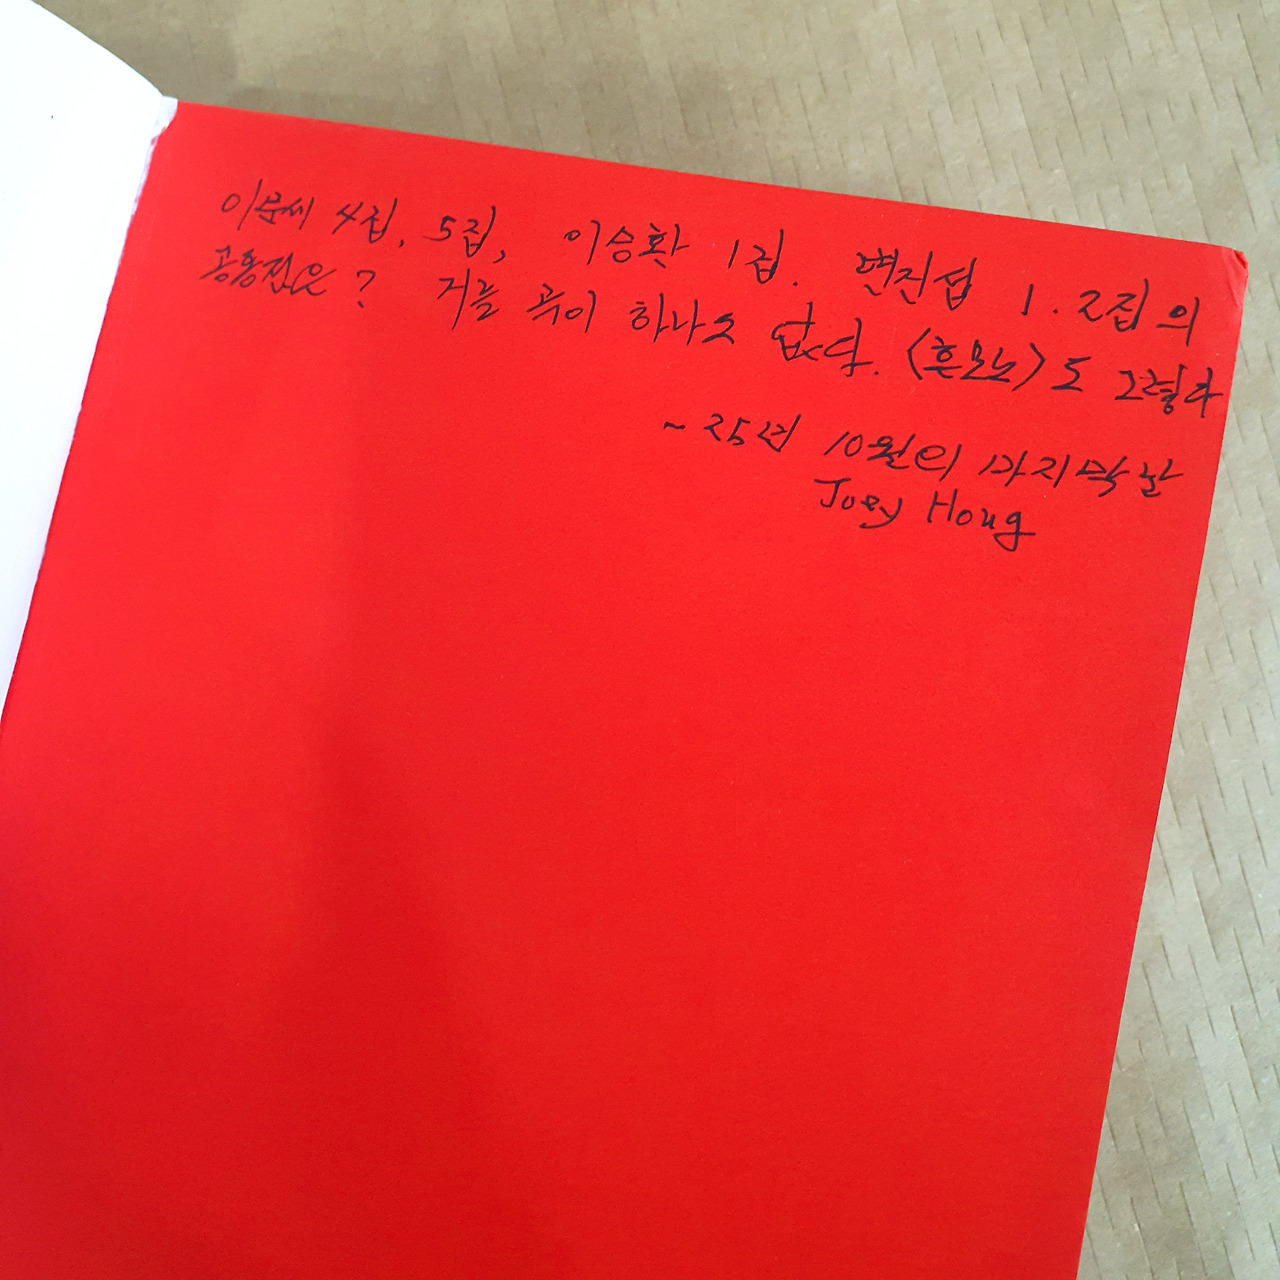 이문세 4집, 5집, 이승환 1집. 변진섭 1. 2집의
공통점은? 거를 곡이 하나도 없다. <혼모노>도 그렇다
~ 25년 10월의 마지막 날
Joey Hong